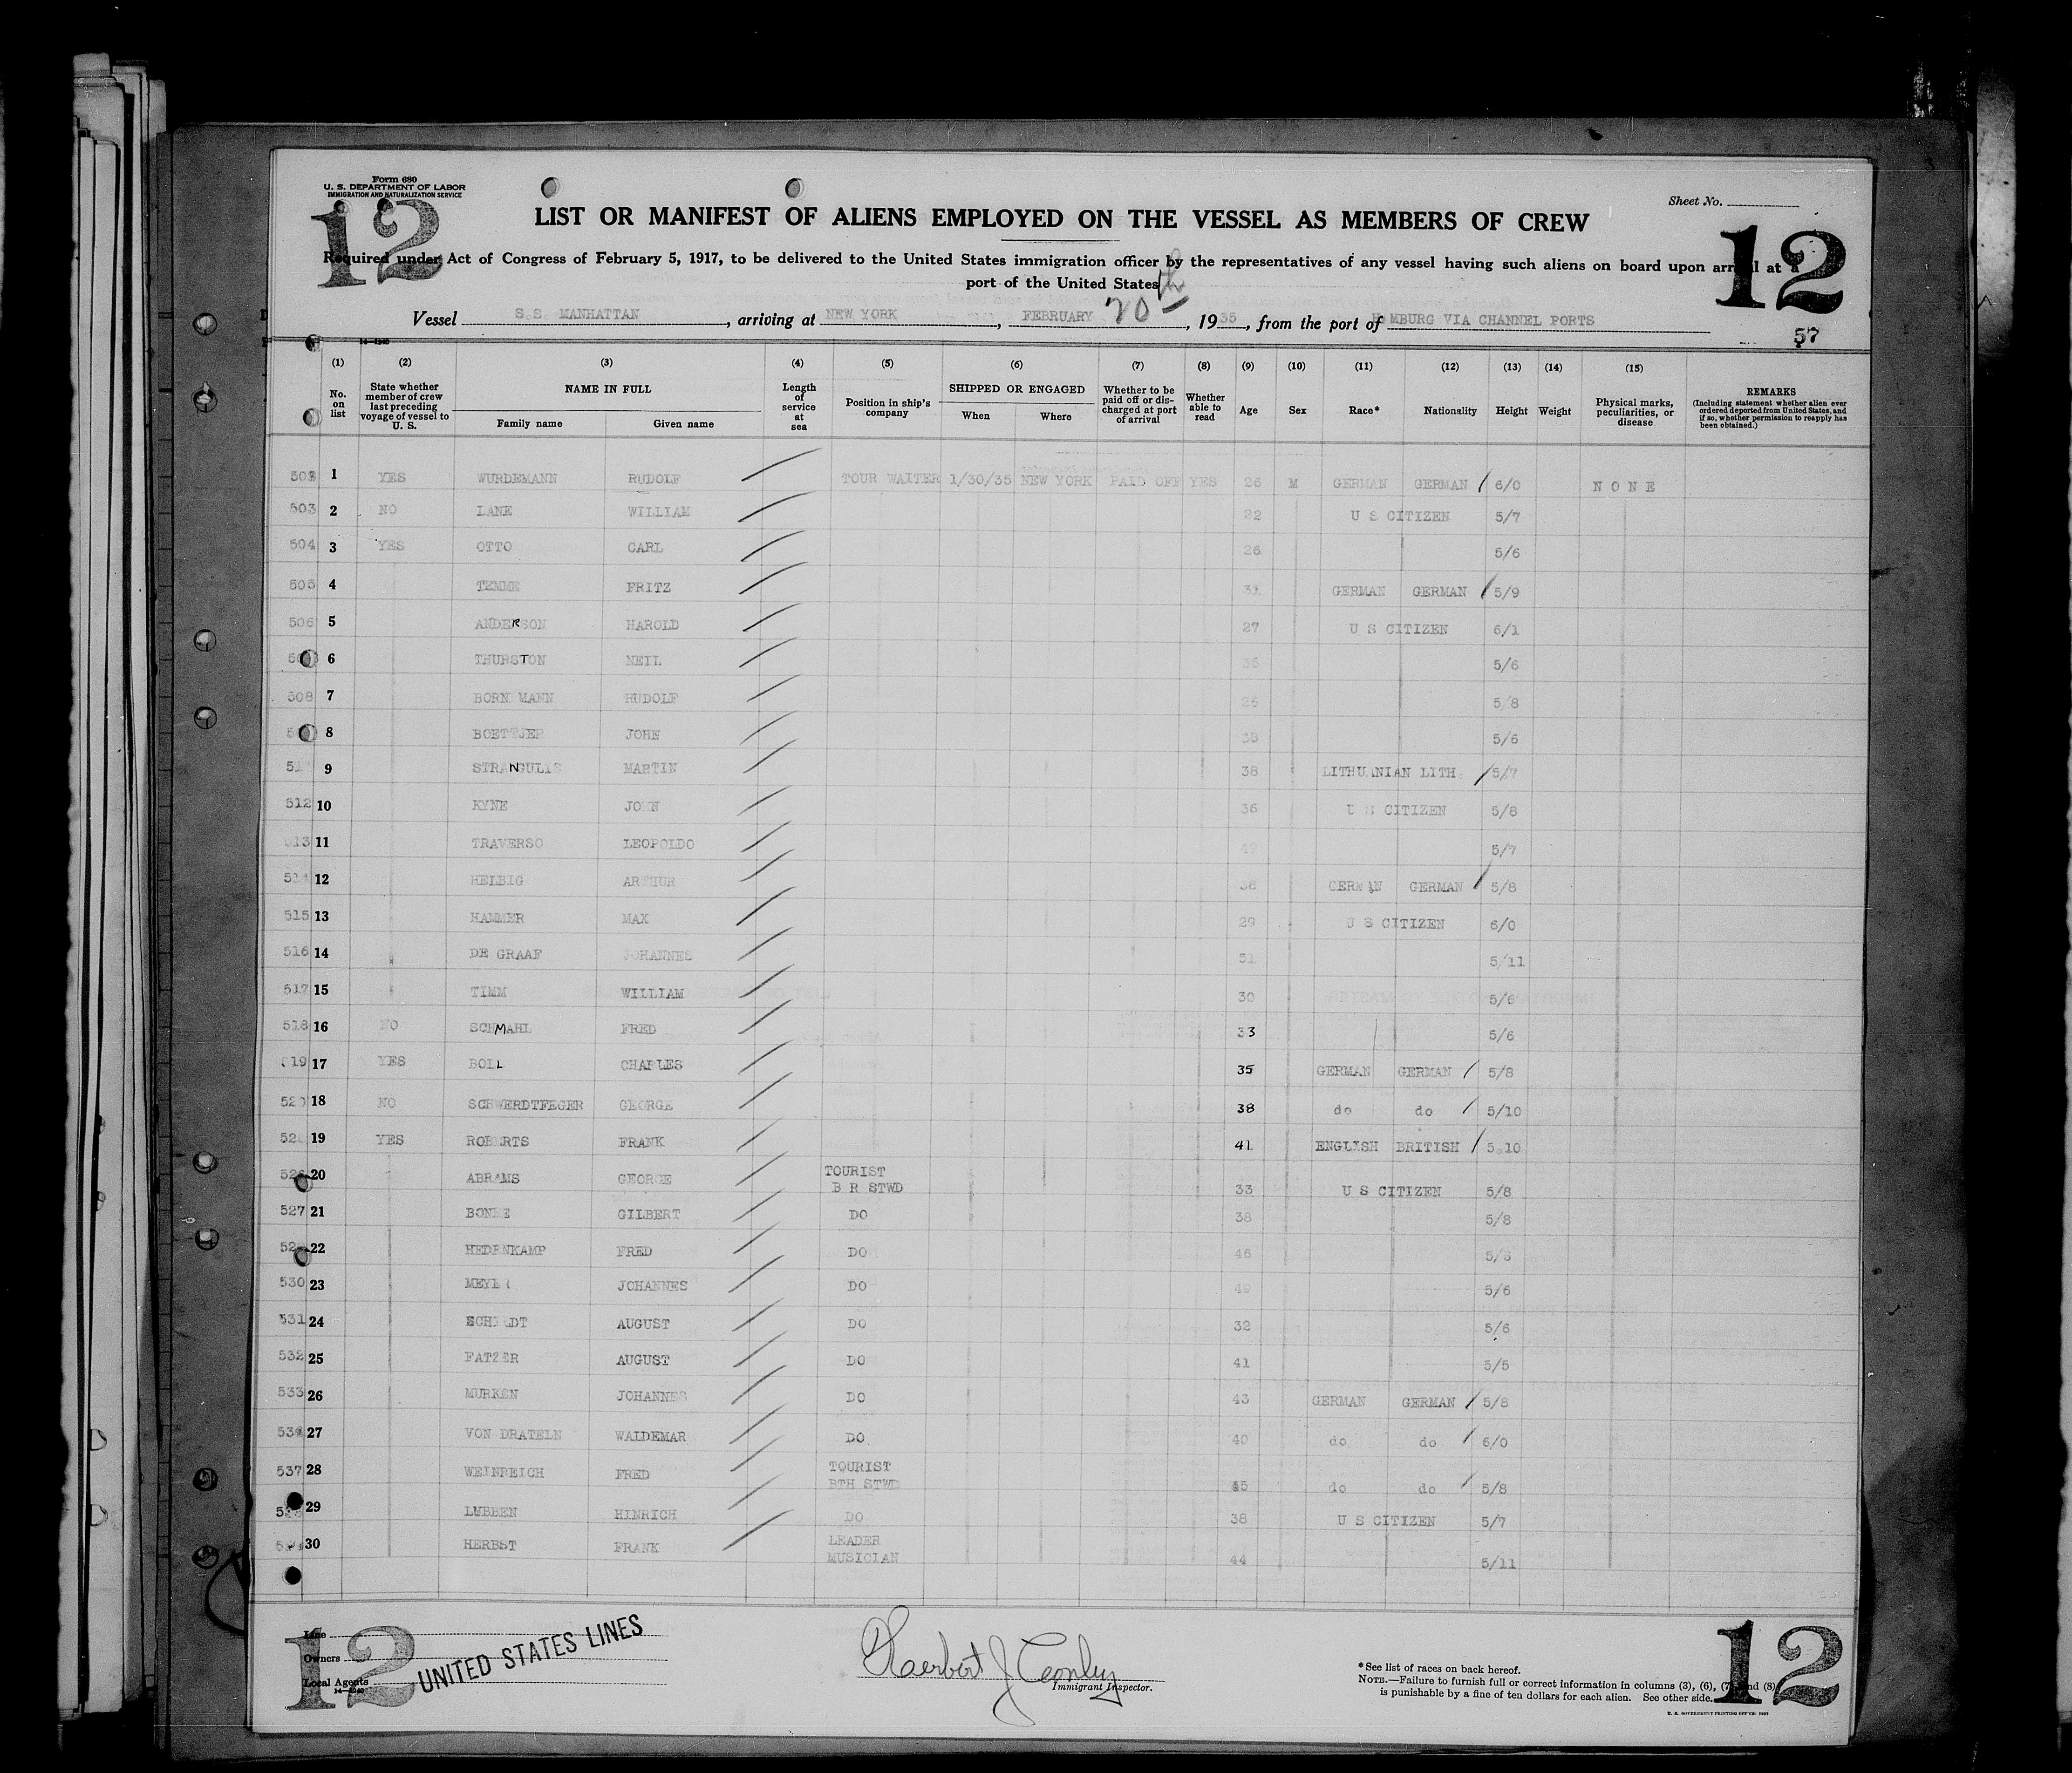 Form 680
U. S. DEPARTMENT OF LABOR
IMMIGRATION AND NATURALIZATION SERVICE
12
Sheet No.
12
LIST OR MANIFEST OF ALIENS EMPLOYED ON THE VESSEL AS MEMBERS OF CREW
Required under Act of Congress of February 5, 1917, to be delivered to the United States immigration officer by the representatives of any vessel having such aliens on board upon arrival at a
port of the United States
Vessel S.S. MANHATTAN, arriving at NEW YORK, FEBRUARY 20th, 1935, from the port of HAMBURG VIA CHANNEL PORTS
57
14—1240
(1) (2) (3) (4) (5) (6) (7) (8) (9) (10) (11) (12) (13) (14) (15)
No. on list State whether member of crew last preceding voyage of vessel to U. S. NAME IN FULL Family name Given name Length of service at sea Position in ship's company SHIPPED OR ENGAGED When Where Whether to be paid off or discharged at port of arrival Whether able to read Age Sex Race* Nationality Height Weight Physical marks, peculiarities, or disease REMARKS (Including statement whether alien ever ordered deported from United States, and if so, whether permission to reapply has been obtained.)
502 1 YES WURDEMANN RUDOLF TOUR WAITER 1/30/35 NEW YORK PAID OFF YES 26 M GERMAN GERMAN 6/0 NONE
503 2 NO LANE WILLIAM 22 U S CITIZEN 5/7
504 3 YES OTTO CARL 26 5/6
505 4 TEMME FRITZ 31 GERMAN GERMAN 5/9
506 5 ANDERSON HAROLD 27 U S CITIZEN 6/1
6 THURSTON NEIL 36 5/6
508 7 BORNEMANN RUDOLF 26 5/8
8 BOETTJER JOHN 38 5/6
9 STRANGULIS MARTIN 38 LITHUANIAN LITH. 5/7
512 10 KYNE JOHN 36 U S CITIZEN 5/8
513 11 TRAVERSO LEOPOLDO 5/7
514 12 HELBIG ARTHUR 38 GERMAN GERMAN 5/8
515 13 HAMMER MAX 29 U S CITIZEN 6/0
516 14 DE GRAAF JOHANNES 51 5/11
517 15 TIMM WILLIAM 30 5/6
518 16 NO SCHMAHL FRED 33 5/6
519 17 YES BOLL CHARLES 35 GERMAN GERMAN 5/8
520 18 NO SCHWERDTFEGER GEORGE 38 do do 5/10
19 YES ROBERTS FRANK 41 ENGLISH BRITISH 5.10
20 ABRAMS GEORGE TOURIST B R STWD 33 U S CITIZEN 5/8
527 21 GILBERT DO 38 5/8
22 HEDENKAMP FRED DO 46
530 23 MEYER JOHANNES DO 49 5/6
531 24 AUGUST DO 32 5/6
532 25 FATZER AUGUST DO 41 5/5
533 26 MURKEN JOHANNES DO 43 GERMAN GERMAN 5/8
27 VON DRATELN WALDEMAR DO 40 do do 6/0
537 28 WEINREICH FRED TOURIST BTH STWD do do 5/8
29 LUBBEN HINRICH DO 38 U S CITIZEN 5/7
30 HERBST FRANK LEADER MUSICIAN 44 5/11
12
Line
Owners
Local Agents
14—1240
UNITED STATES LINES
Immigrant Inspector.
*See list of races on back hereof.
NOTE.—Failure to furnish full or correct information in columns (3), (6), (7) and (8)
is punishable by a fine of ten dollars for each alien. See other side.
U. S. GOVERNMENT PRINTING OFFICE
12